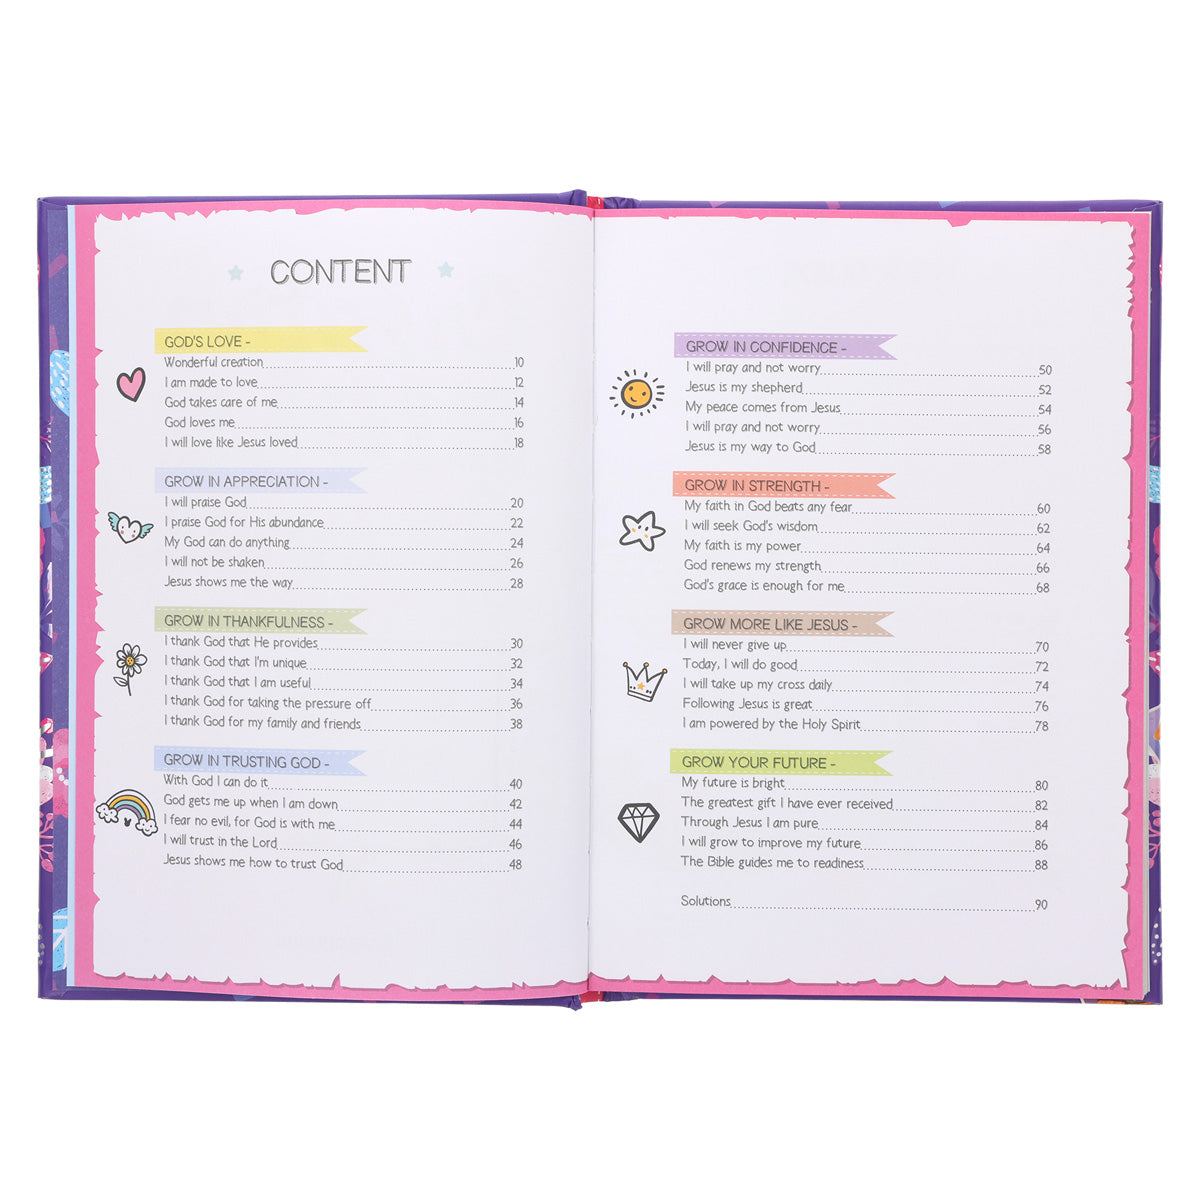 CONTENT
GOD'S LOVE -
Wonderful creation 10
I am made to love 12
God takes care of me 14
God loves me 16
I will love like Jesus loved 18
GROW IN APPRECIATION -
I will praise God 20
I praise God for His abundance 22
My God can do anything 24
I will not be shaken 26
Jesus shows me the way 28
GROW IN THANKFULNESS -
I thank God that He provides 30
I thank God that I'm unique 32
I thank God that I am useful 34
I thank God for taking the pressure off 36
I thank God for my family and friends 38
GROW IN TRUSTING GOD -
With God I can do it 40
God gets me up when I am down 42
I fear no evil, for God is with me 44
I will trust in the Lord 46
Jesus shows me how to trust God 48
GROW IN CONFIDENCE -
I will pray and not worry 50
Jesus is my shepherd 52
My peace comes from Jesus 54
I will pray and not worry 56
Jesus is my way to God 58
GROW IN STRENGTH -
My faith in God beats any fear 60
I will seek God's wisdom 62
My faith is my power 64
God renews my strength 66
God's grace is enough for me 68
GROW MORE LIKE JESUS -
I will never give up 70
Today, I will do good 72
I will take up my cross daily 74
Following Jesus is great 76
I am powered by the Holy Spirit 78
GROW YOUR FUTURE -
My future is bright 80
The greatest gift I have ever received 82
Through Jesus I am pure 84
I will grow to improve my future 86
The Bible guides me to readiness 88
Solutions 90